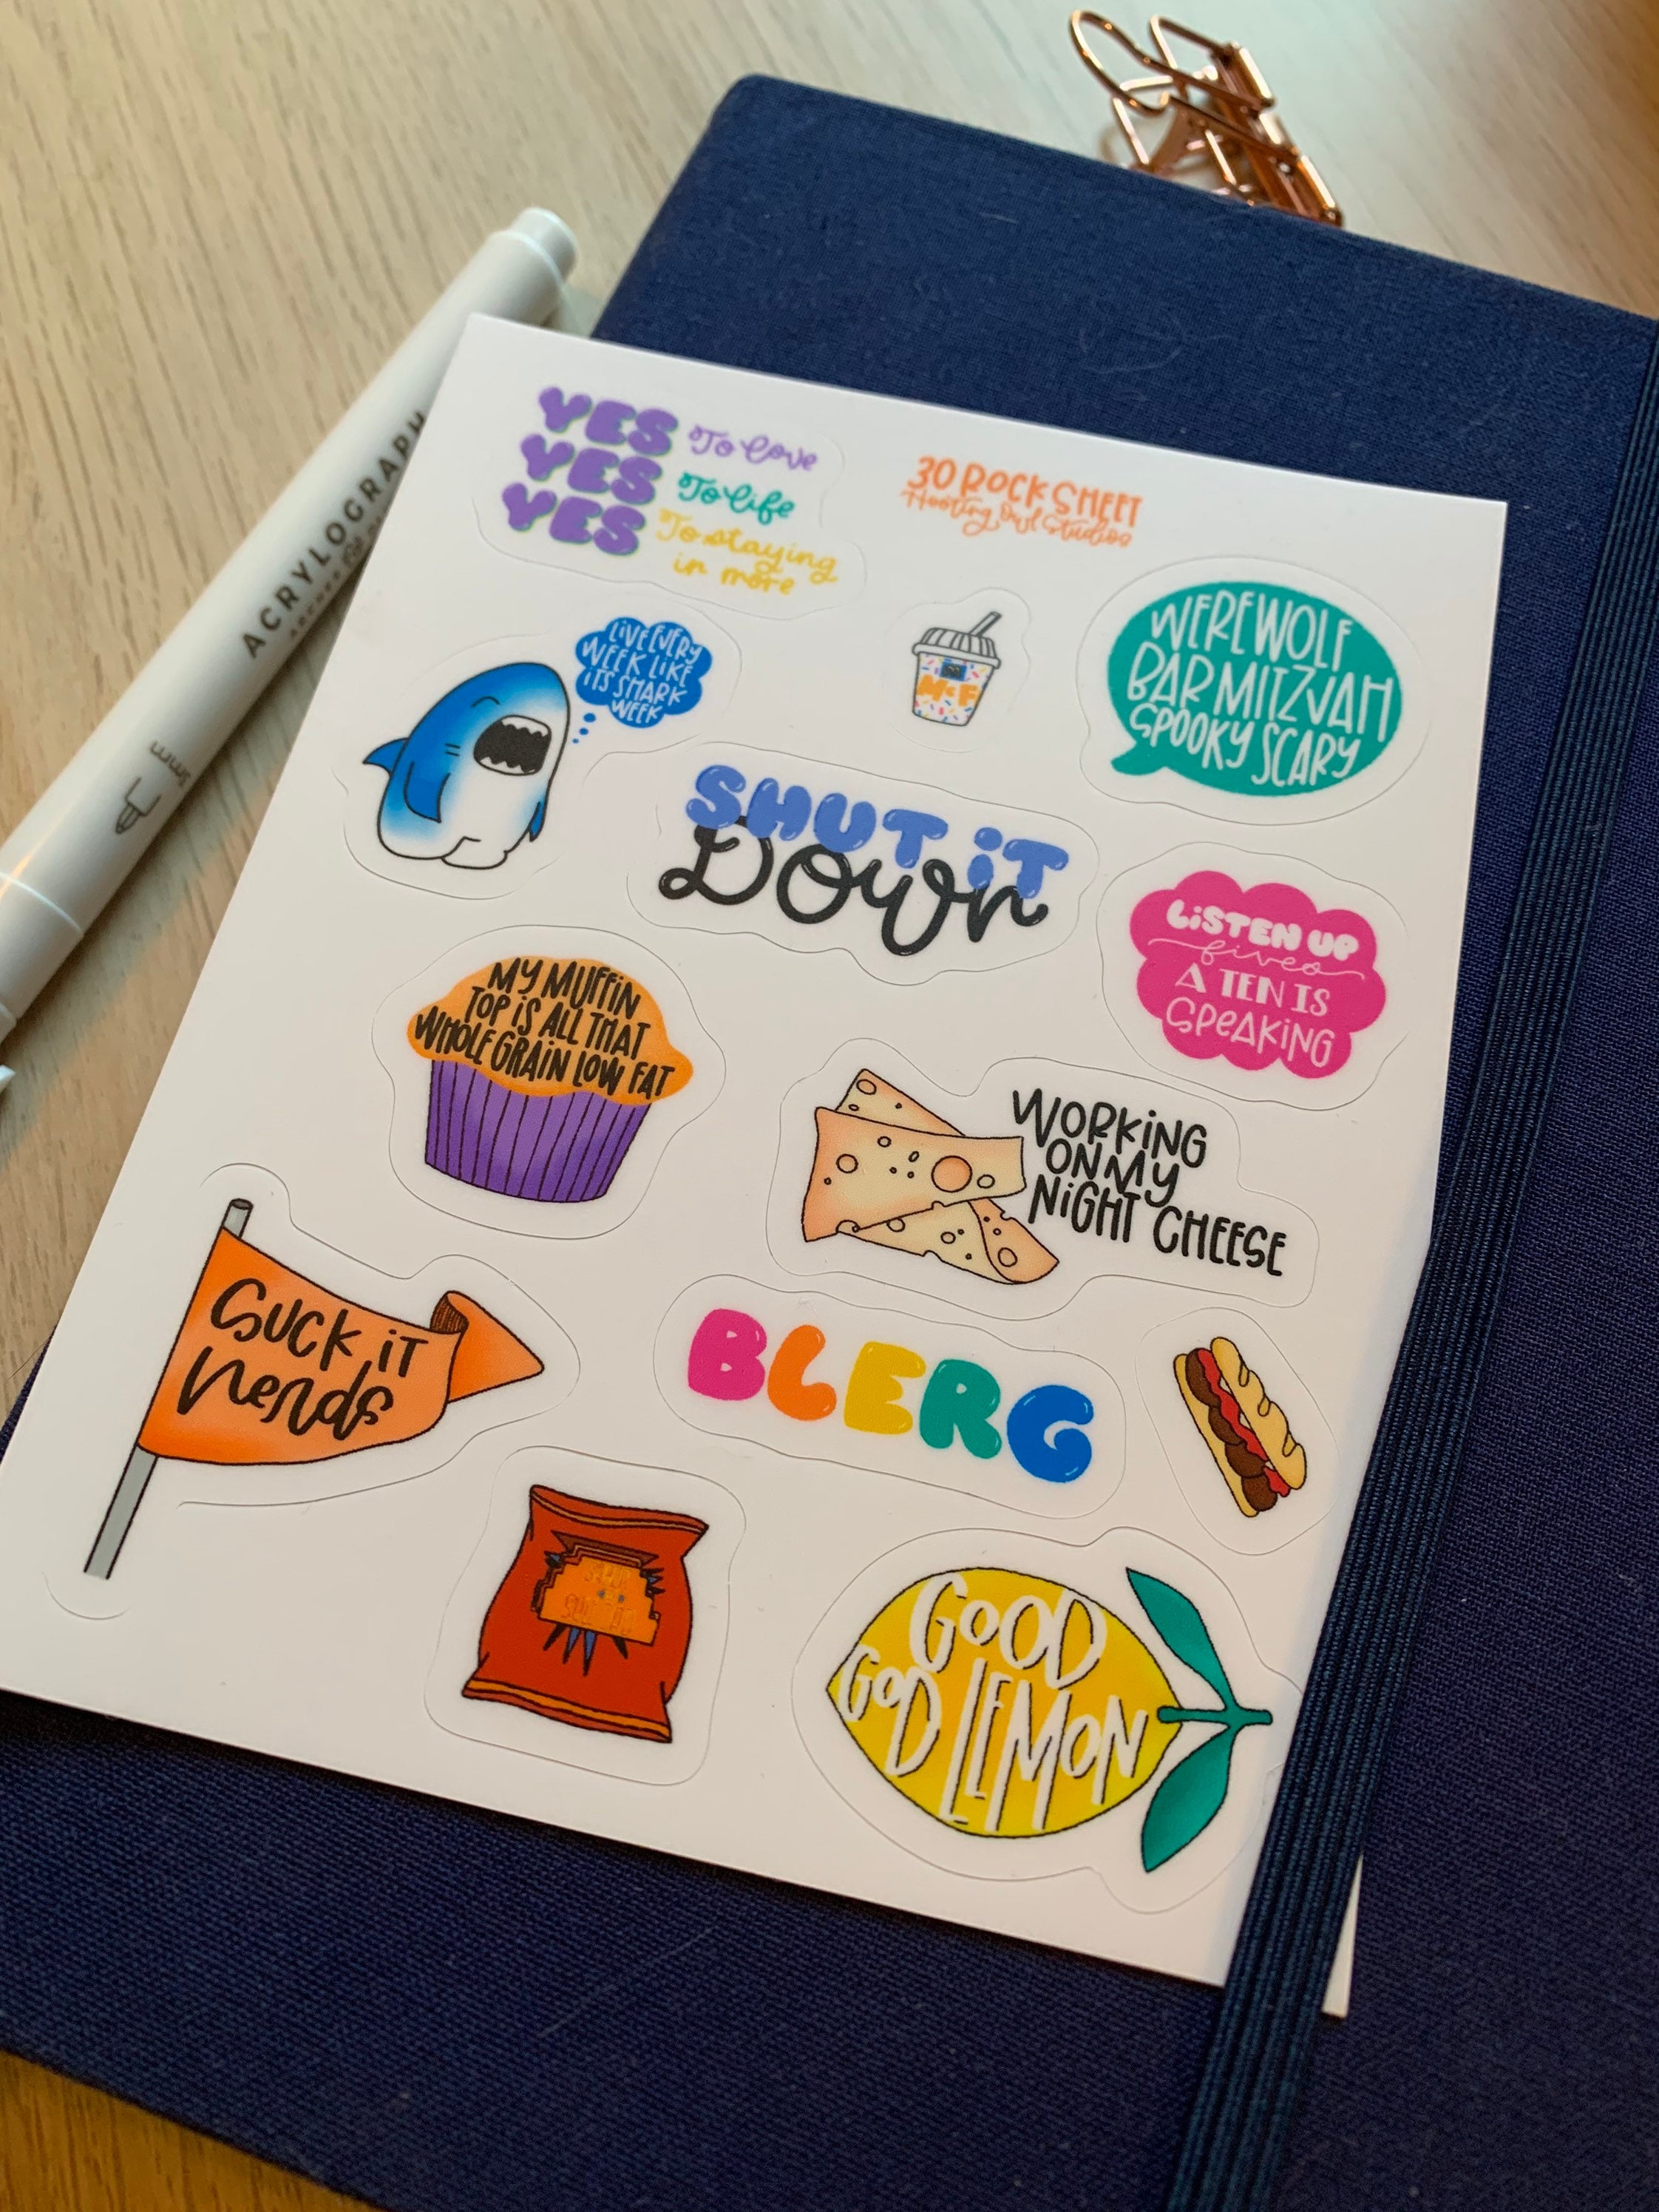 YES To love
YES To life
YES To staying
in more
30 ROCK SHEET
Hooting Owl Studios
LIVE EVERY
WEEK LIKE
ITS SHARK
WEEK
McF
WEREWOLF
BAR MITZVAH
SPOOKY SCARY
SHUT iT
Down
LiSTEN UP
fives
A TEN IS
SPEAKING
MY MUFFiN
TOP iS ALL THAT
WHOLE GRAIN LOW FAT
WORKiNG
ON MY
NiGHT CHEESE
SUCK iT
nerds
BLERG
GOOD
GOD LEMON
ACRYLOGRAPH
3mm